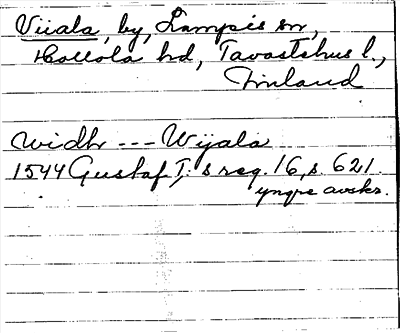 Viiala, by, Lampis sn,
Hollola hd, Tavastehus l.,
Finland
widh --- Wijala
1544 Gustaf I:s reg. 16, s. 621.
yngre avskr.